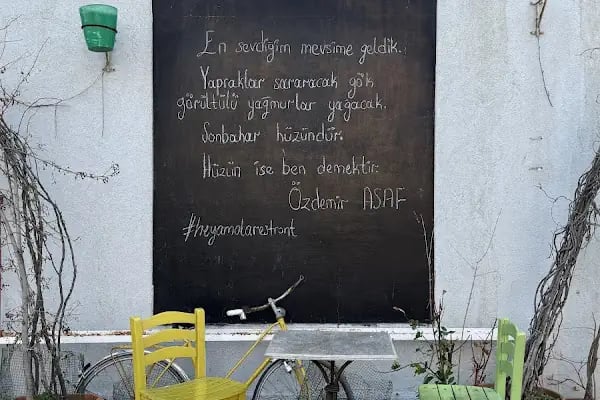 En sevdiğim mevsime geldik.
Yapraklar sararacak gök
gürültülü yağmurlar yağacak.
Sonbahar hüzündür.
Hüzün ise ben demektir.
Özdemir ASAF
#heyamolarestrant